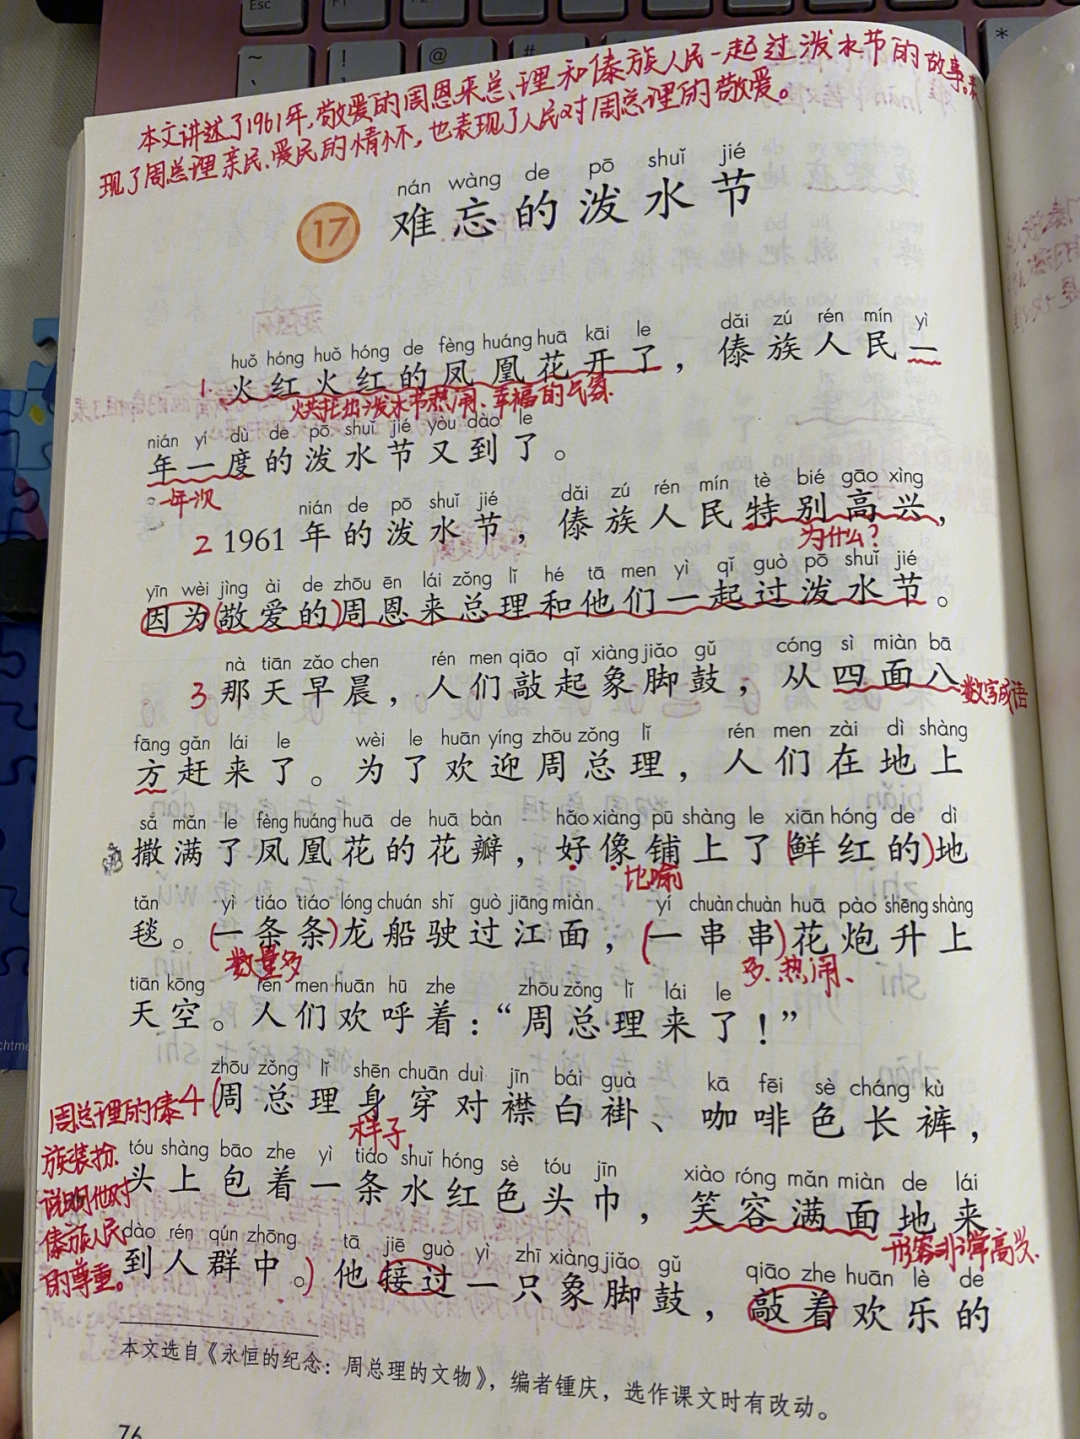 本文讲述了1961年,敬爱的周恩来总理和傣族人民一起过泼水节的故事。表
现了周总理亲民、爱民的情怀,也表现了人民对周总理的敬爱。
nán wàng de pō shuǐ jié
17 难忘的泼水节
huǒ hóng huǒ hóng de fèng huáng huā kāi le dǎi zú rén mín yì
1. 火红火红的凤凰花开了，傣族人民一
烘托出泼水节热闹、幸福的气氛.
nián yí dù de pō shuǐ jié yòu dào le
年一度的泼水节又到了。
一年一次
nián de pō shuǐ jié dǎi zú rén mín tè bié gāo xìng
2 1961年的泼水节，傣族人民特别高兴，
为什么?
yīn wèi jìng ài de zhōu ēn lái zǒng lǐ hé tā men yì qǐ guò pō shuǐ jié
因为(敬爱的)周恩来总理和他们一起过泼水节。
nà tiān zǎo chen rén men qiāo qǐ xiàng jiǎo gǔ cóng sì miàn bā
3 那天早晨，人们敲起象脚鼓，从四面八
数字成语
fāng gǎn lái le wèi le huān yíng zhōu zǒng lǐ rén men zài dì shàng
方赶来了。为了欢迎周总理，人们在地上
sǎ mǎn le fèng huáng huā de huā bàn hǎo xiàng pū shàng le xiān hóng de dì
撒满了凤凰花的花瓣，好像铺上了(鲜红的)地
比喻
tǎn yì tiáo tiáo lóng chuán shǐ guò jiāng miàn yí chuàn chuàn huā pào shēng shàng
毯。(一条条)龙船驶过江面，(一串串)花炮升上
数量多
多、热闹、
tiān kōng rén men huān hū zhe zhōu zǒng lǐ lái le
天空。人们欢呼着：“周总理来了！”
zhōu zǒng lǐ shēn chuān duì jīn bái guà kā fēi sè cháng kù
4(周总理身穿对襟白褂、咖啡色长裤，
样子,
tóu shàng bāo zhe yì tiáo shuǐ hóng sè tóu jīn xiào róng mǎn miàn de lái
头上包着一条水红色头巾，笑容满面地来
形容非常高兴.
dào rén qún zhōng tā jiē guò yì zhī xiàng jiǎo gǔ qiāo zhe huān lè de
到人群中。)他接过一只象脚鼓，敲着欢乐的
周总理的傣
族装扮.
说明他对
傣族人民
的尊重。
本文选自《永恒的纪念：周总理的文物》，编者锺庆，选作课文时有改动。
76
Esc
F1
F2
~
!
@
#
*